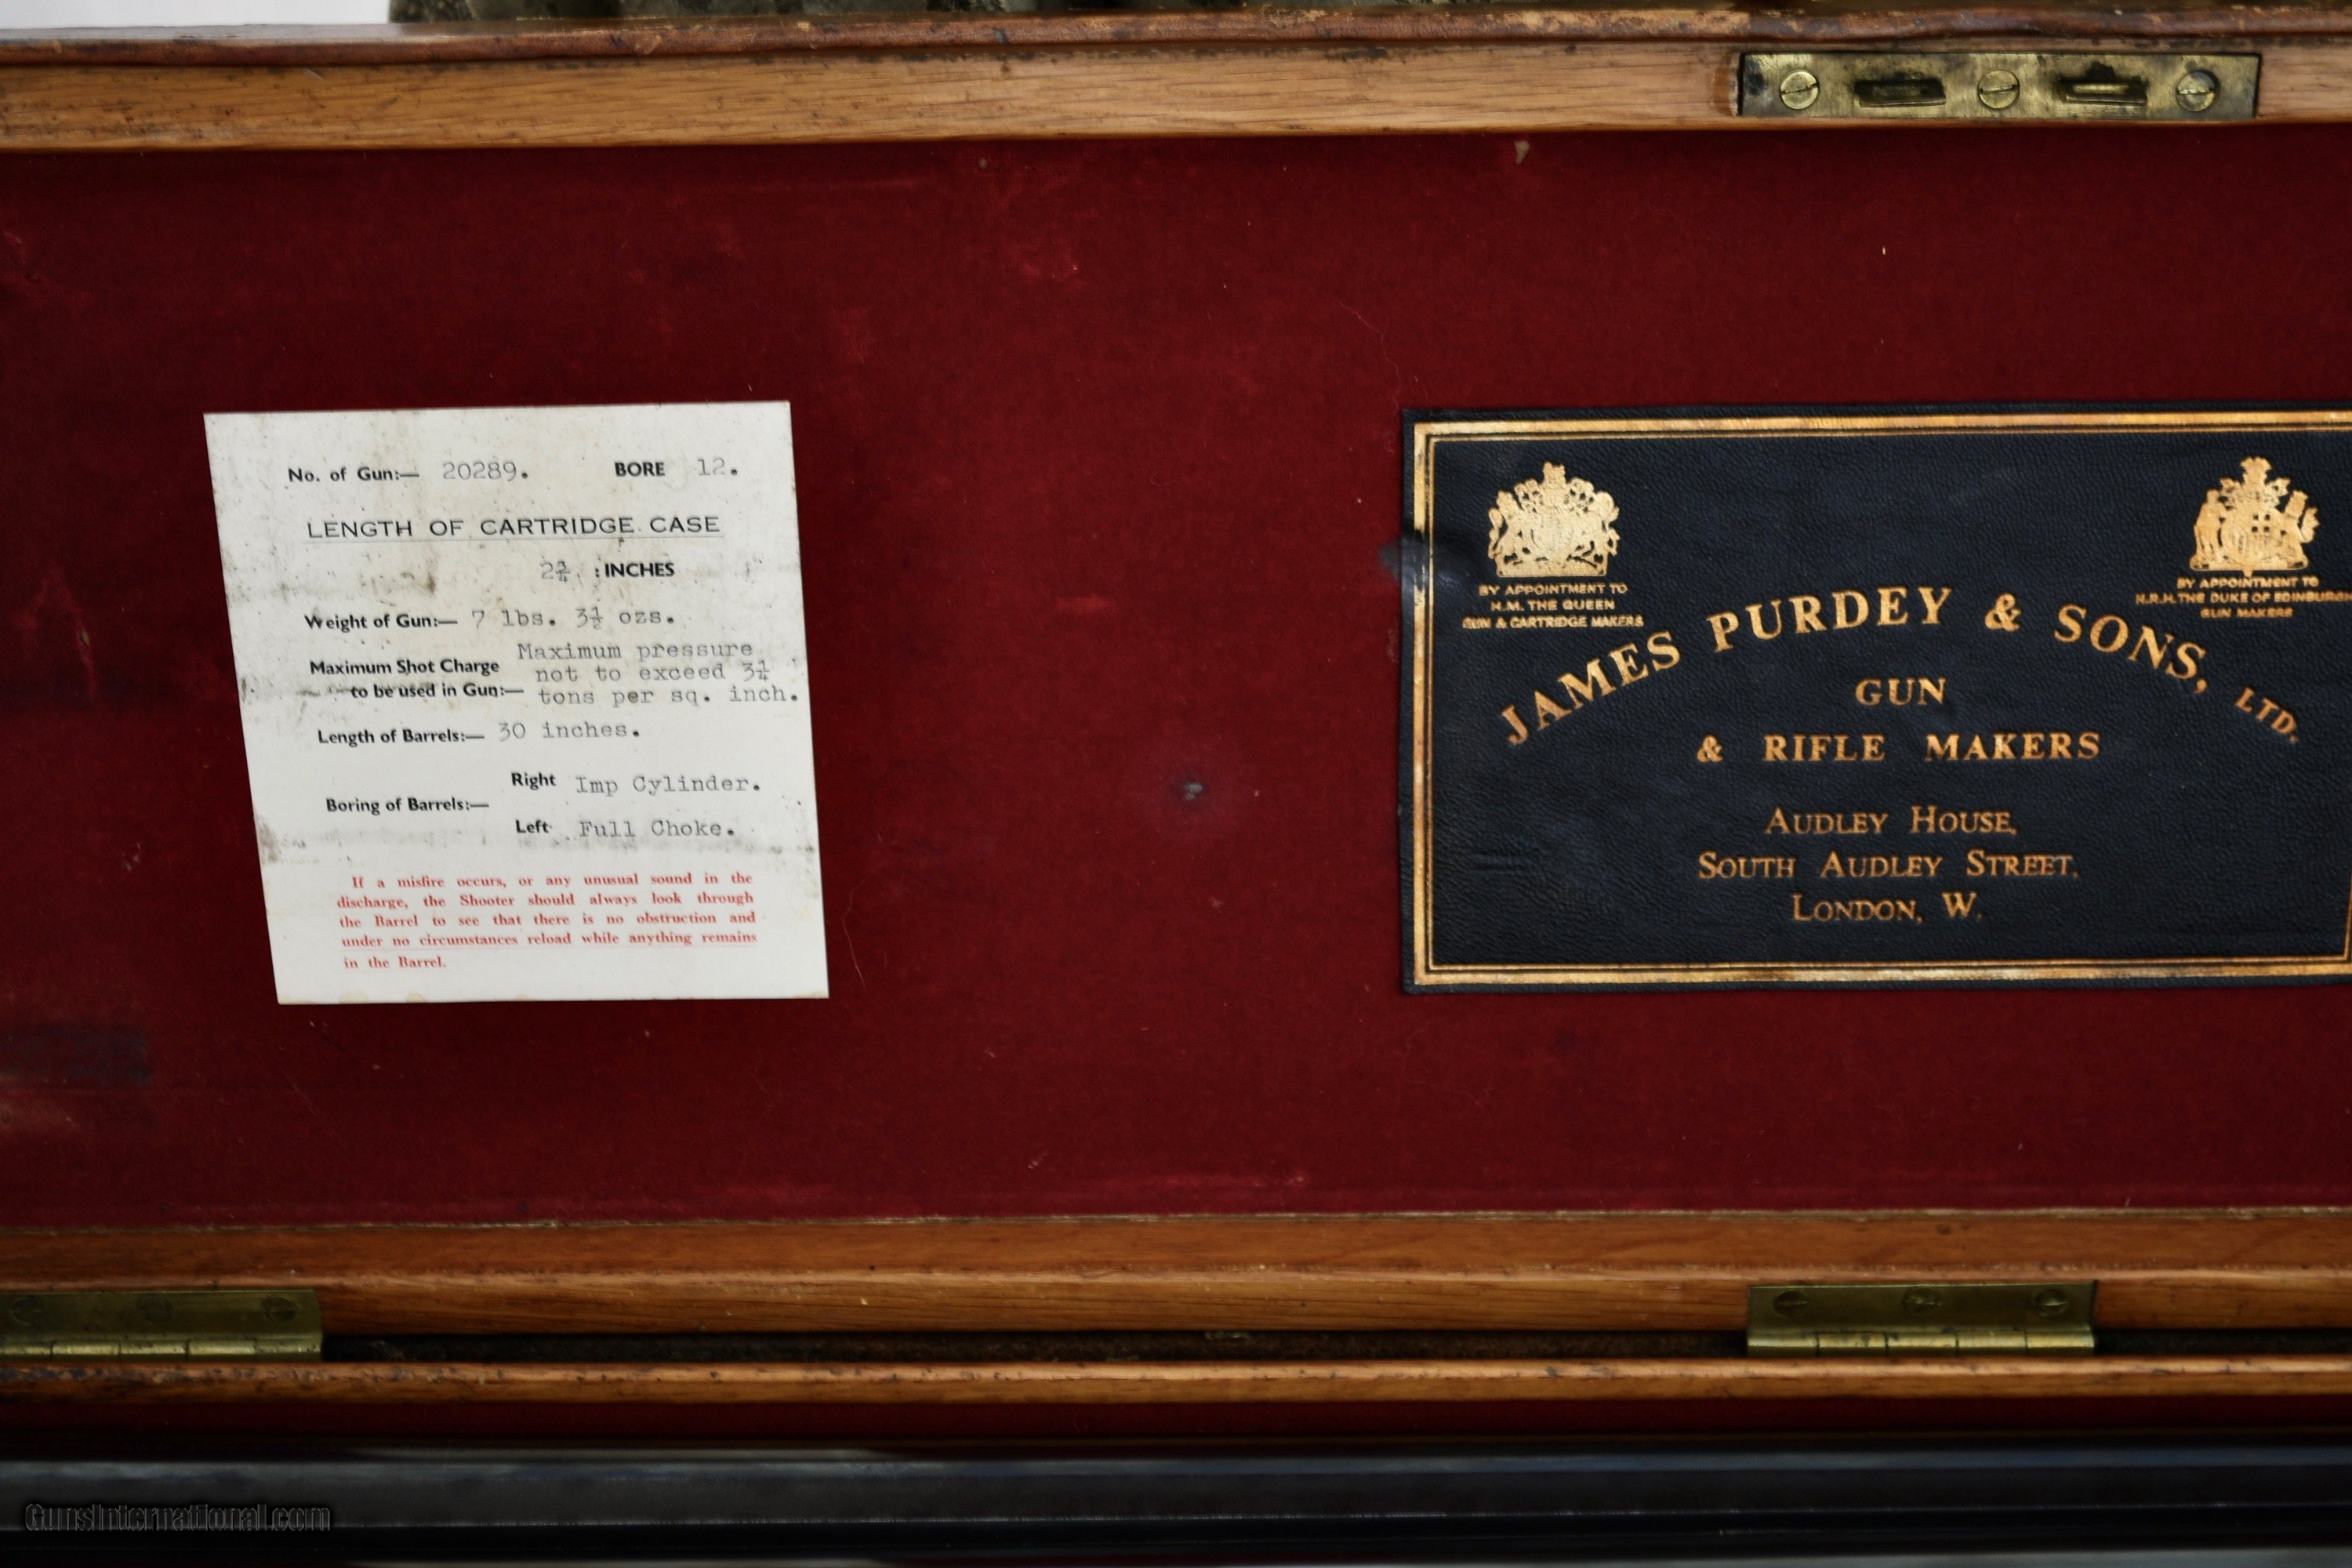 No. of Gun:— 20289. BORE 12.
LENGTH OF CARTRIDGE CASE
2¾ : INCHES
Weight of Gun:— 7 lbs. 3½ ozs.
Maximum Shot Charge to be used in Gun:— Maximum pressure
not to exceed 3¼
tons per sq. inch.
Length of Barrels:— 30 inches.
Boring of Barrels:—
Right Imp Cylinder.
Left Full Choke.
If a misfire occurs, or any unusual sound in the
discharge, the Shooter should always look through
the Barrel to see that there is no obstruction and
under no circumstances reload while anything remains
in the Barrel.
BY APPOINTMENT TO
H.M. THE QUEEN
GUN & CARTRIDGE MAKERS
BY APPOINTMENT TO
H.R.H. THE DUKE OF EDINBURGH
GUN MAKERS
JAMES PURDEY & SONS, LTD.
GUN
& RIFLE MAKERS
AUDLEY HOUSE,
SOUTH AUDLEY STREET,
LONDON, W.
GunsInternational.com